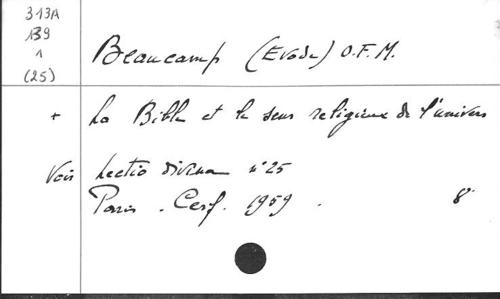 313A
B9
1
(25)
Beaucamp (Evode) O.F.M.
+ La Bible et le sens religieux de l'univers
Voir Lectio divina n°25
Paris. Cerf. 1959. 8°